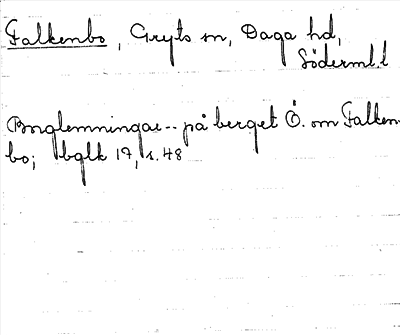 Falkenbo, Gryts sn, Daga hd,
Söderml. l
Borglemningar -- på berget Ö. om Falken-
bo; bglk 17, s. 48